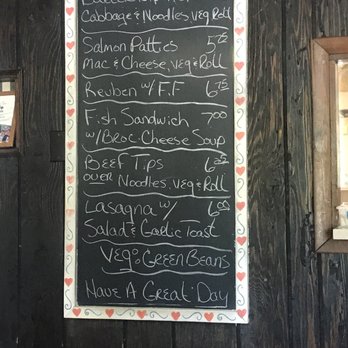 Cabbage & Noodles, Veg Roll
Salmon Patties 5.75
Mac & Cheese, Veg & Roll
Reuben w/ F.F 6.75
Fish Sandwich 7.00
w/ Broc. Cheese Soup
Beef Tips
over Noodles, Veg & Roll
Lasagna w/ 6.00
Salad & Garlic Toast
Veg: Green Beans
Have A Great Day